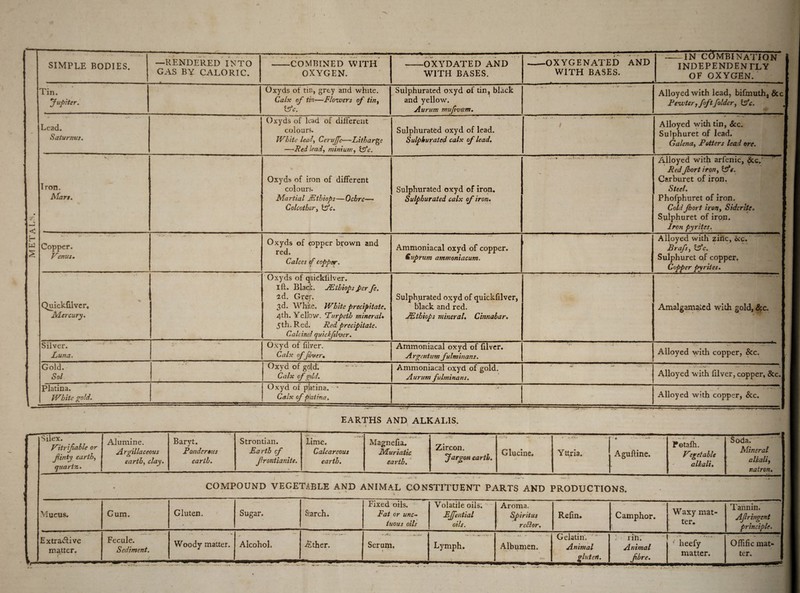 SIMPLE BODIES.
—RENDERED INTO
GAS BY CALORIC.
——COMBINED WITH
OXYGEN.
——OXYDATED AND
WITH BASES.
——OXYGENATED AND
WITH BASES.
——IN COMBINATION
INDEPENDENTLY
OF OXYGEN.
METALS.
Tin.
Jupiter.
Oxyds of tin, grey and white.
Calx of tin—Flowers of tin,
&c.
Sulphurated oxyd of tin, black
and yellow.
Aurum musivum.
Alloyed with lead, bismuth, &c
Pewter, soft solder, &c.
Lead.
Saturnus.
Oxyds of lead of different
colours.
White lead, Ceruſſe—Litharge
—Red lead, minium, &c.
Sulphurated oxyd of lead.
Sulphurated calx of lead.
Alloyed with tin, &c.
Sulphuret of lead.
Galena, Potters lead ore.
Iron.
Mars.
Oxyds of iron of different
colours.
Martial Æthiops—Ochre—
Colcothar, &c.
Sulphurated oxyd of iron.
Sulphurated calx of iron.
Alloyed with arſenic, &c.
Red ſhort iron, &c.
Carburet of iron.
Steel.
Phoſphuret of iron.
Cold ſhort iron, Siderite.
Sulphuret of iron.
Iron pyrites.
Copper.
Venus.
Oxyds of copper brown and
red.
Calces of copper.
Ammoniacal oxyd of copper.
Cuprum ammoniacum.
Alloyed with zinc, &c.
Braſs, &c.
Sulphuret of copper.
Copper pyrites.
Quickſilver.
Mercury.
Oxyds of quickſilver.
1ſt. Black. Æthiops per ſe.
2d. Grey.
3d. White. White precipitate.
4th. Yellow. Turpeth mineral.
5th. Red. Red precipitate.
Calcined quickſilver.
Sulphurated oxyd of quickſilver,
black and red.
Æthiops mineral. Cinnabar.
Amalgamated with gold, &c.
Silver.
Luna.
Oxyd of ſilver.
Calx of ſilver.
Ammoniacal oxyd of ſilver.
Argentum fulminans.
Alloyed with copper, &c.
Gold.
Sol
Oxyd of gold.
Calx of gold.
Ammoniacal oxyd of gold.
Aurum fulminans.
Alloyed with ſilver, copper, &c.
Platina.
White gold.
Oxyd of platina.
Calx of platina.
Alloyed with copper, &c.
EARTHS AND ALKALIS.
Silex.
Vitrifiable or
flinty earth,
quartz.
Alumine.
Argillaceous
earth, clay.
Baryt.
Ponderous
earth.
Strontian.
Earth of
ſtrontianite.
Lime.
Calcareous
earth.
Magneſia.
Muriatic
earth.
Zircon.
Jargon earth.
Glucine.
Yttria.
Aguſtine.
Potaſh.
Vegetable
alkali.
Soda.
Mineral
alkali,
natron.
COMPOUND VEGETABLE AND ANIMAL CONSTITUENT PARTS AND PRODUCTIONS.
Mucus.
Gum.
Gluten.
Sugar.
Starch.
Fixed oils.
Fat or unc-
tuous oils
Volatile oils.
Eſſential
oils.
Aroma.
Spiritus
rector.
Reſin.
Camphor.
Waxy mat-
ter.
Tannin.
Aſtringent
principle.
Extractive
matter.
Fecule.
Sediment.
Woody matter.
Alcohol.
Æther.
Serum.
Lymph.
Albumen.
Gelatin.
Animal
gluten.
rin.
Animal
fibre.
heeſy
matter.
Oſſific mat-
ter.